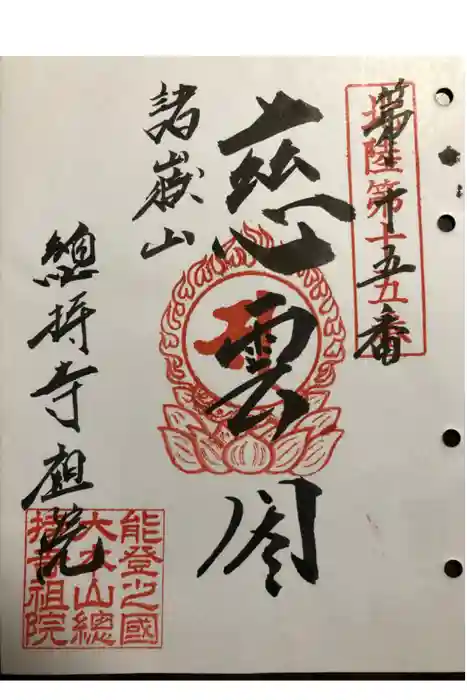 北陸第十五番
第十五番
慈雲閣
諸嶽山
總持寺祖院
能登之國
大本山總
持寺祖院